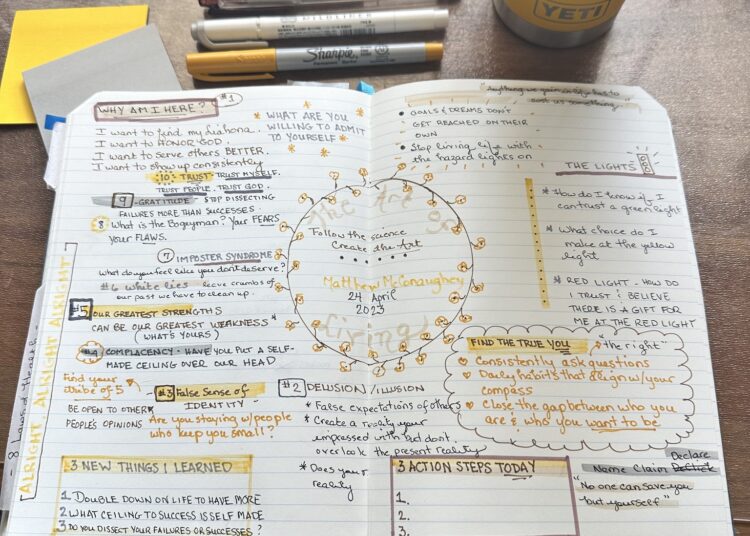 Sharpie
YETI
WHY AM I HERE? #1
I want to find my
I want to HONOR GOD.
I want to serve others BETTER.
I want to show up consistently
10. TRUST- TRUST MYSELF.
TRUST PEOPLE. TRUST GOD.
9 - GRATITUDE - STOP DISSECTING
FAILURES MORE THAN SUCCESSES.
8 What is the Bogyman? Your FEARS
your FLAWS.
7 IMPOSTER SYNDROME
What do you feel like you don't deserve?
#6 White lies leave crumbs of
our past we have to clean up.
#5 OUR GREATEST STRENGTHS
CAN BE OUR GREATEST WEAKNESS
(WHAT'S YOURS)
#4 COMPLACENCY - HAVE YOU PUT A SELF-
MADE CEILING OVER OUR HEAD
Find your
tribe of 5
BE OPEN TO OTHER
PEOPLE'S OPINIONS
#3 False Sense of
IDENTITY
Are you staying w/people
who keep you small?
ALRIGHT ALRIGHT ALRIGHT
- 8 Laws of Health -
3 NEW THINGS I LEARNED
1 DOUBLE DOWN ON LIFE TO HAVE MORE
2 WHAT CEILING TO SUCCESS IS SELF MADE
3 DO YOU DISSECT YOUR FAILURES OR SUCCESSES?
WHAT ARE YOU
WILLING TO ADMIT
TO YOURSELF
The Art
Of
Follow the science
Create the Art
Matthew McConaughey
24 April
2023
Living
#2 DELUSION/ILLUSION
* False expectations of others
* Create a reality your
impressed with but don't
overlook the present reality
* Does your
reality
"Anything we gain in life has to
cost us something."
• GOALS & DREAMS DON'T
GET REACHED ON THEIR
OWN
• Stop living life with
the hazard lights on
THE LIGHTS
* How do I know if I
can trust a green light
* What choice do I
make at the yellow
light
* RED LIGHT - HOW DO
I TRUST & BELIEVE
THERE IS A GIFT FOR
ME AT THE RED LIGHT
FIND THE TRUE YOU "the right"
Consistently ask questions
Daily habits that align w/your
compass
Close the gap between who you
are & who you want to be
3 ACTION STEPS TODAY
1.
2.
3.
Declare
Name Claim
"No one can save you
but yourself"